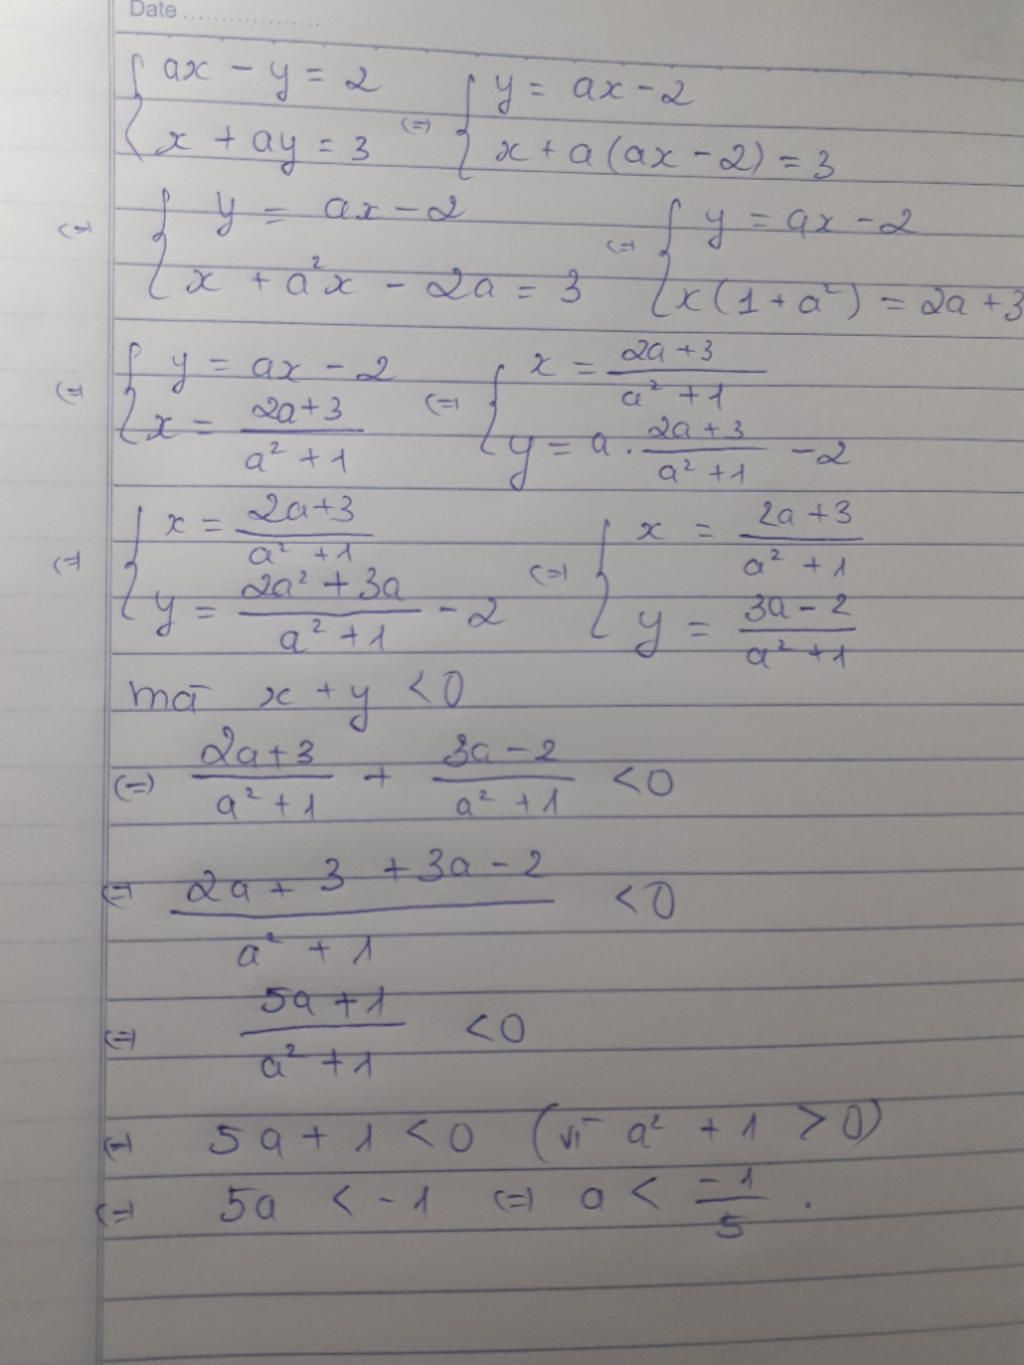 Date ....................
{ ax - y = 2 { y = ax - 2
{ x + ay = 3 (=) { x + a(ax - 2) = 3
(=) { y = ax - 2 (=) { y = ax - 2
{ x + a²x - 2a = 3 { x(1 + a²) = 2a + 3
(=) { y = ax - 2 (=) { x = (2a+3)/(a² + 1)
{ x = (2a+3)/(a² + 1) { y = a . (2a+3)/(a² + 1) - 2
(=) { x = (2a+3)/(a² + 1) (=) { x = (2a+3)/(a² + 1)
{ y = (2a² + 3a)/(a² + 1) - 2 { y = (3a - 2)/(a² + 1)
mà x + y < 0
(=) (2a+3)/(a² + 1) + (3a - 2)/(a² + 1) < 0
(=) (2a + 3 + 3a - 2)/(a² + 1) < 0
(=) (5a + 1)/(a² + 1) < 0
(=) 5a + 1 < 0 (vì a² + 1 > 0)
(=) 5a < -1 (=) a < -1/5 .